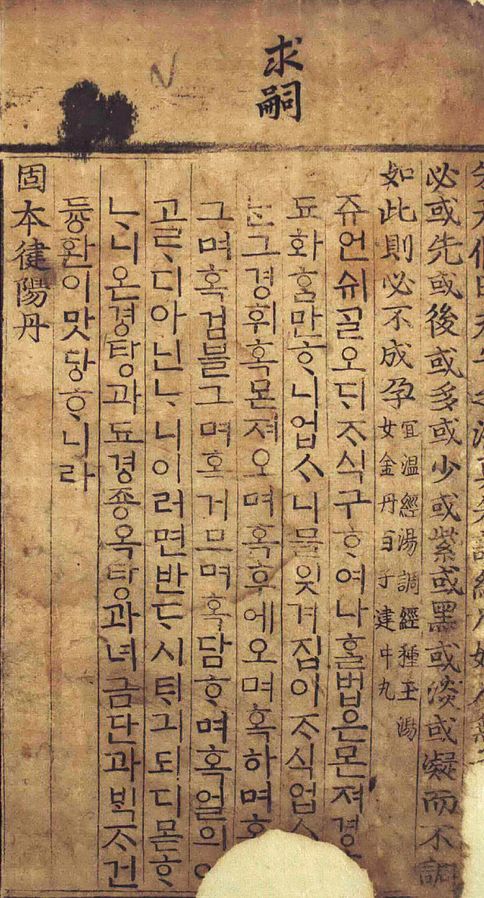 求嗣
必或先或後或多或少或紫或黑或淡或凝而不調
如此則必不成孕
宜溫經湯調經種玉湯
女金丹百子建中丸
쥬언슈ᄀᆞᆯ오ᄃᆡᄌᆞ식구ᄒᆞ여나홀법은몬져경
됴화홈만ᄒᆞ니업스니믈읫겨집이ᄌᆞ식업
ᄂᆞᆫ그경휘혹몬져오며혹후에오며혹하며
그며혹검블그며호거므며혹담ᄒᆞ며혹얼의
고ᄅᆞ디아닌ᄂᆞ니이러면반ᄃᆞ시ᄐᆡ긔되디몯ᄒᆞ
ᄂᆞ니온경탕과됴경죵옥탕과녀금단과ᄇᆡᆨᄌᆞ건
듕환이맛당ᄒᆞ니라
固本健陽丹